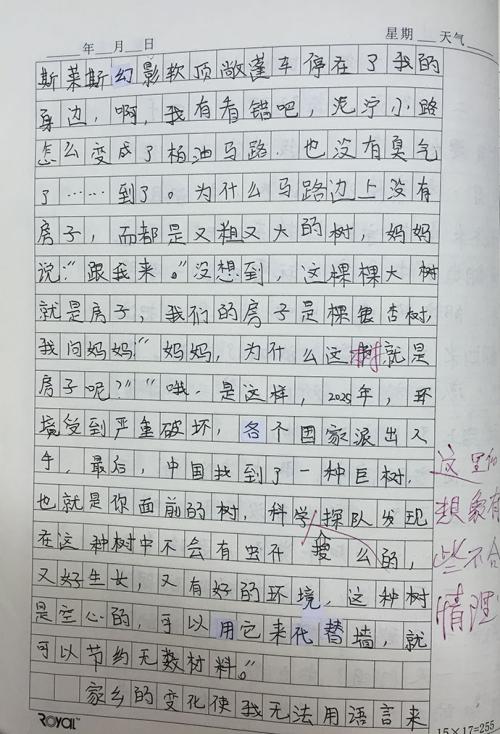 年 月 日 星期 天气
斯莱斯幻影软顶敞蓬车停在了我的
身边,啊,我有看错吧,泥泞小路
怎么变成了柏油马路.也没有臭气
了……到了。为什么马路边上没有
房子,而都是又粗又大的树,妈妈
说:“跟我来。”没想到,这棵棵大树
就是房子,我们的房子是棵银杏树,
我问妈妈:“妈妈,为什么这树就是
房子呢?”“哦.是这样,2025年,环
境受到严重破坏,各个国家派出人
手,最后,中国找到了一种巨树,
也就是你面前的树,科学探队发现
在这种树中不会有虫什么的,
又好生长,又有好的环境,这种树
是空心的,可以用它来代替墙,就
可以节约无数材料。”
家乡的变化使我无法用语言来
这里的
想象有
些不合
情理
ROYAL
15×17=255